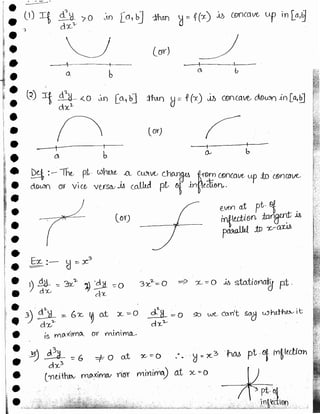 (1) If d²y/dx² > 0 in [a,b] then y = f(x) is concave up in [a,b]
(or)
a b a b
(2) If d²y/dx² < 0 in [a,b] then y = f(x) is concave down in [a,b]
(or)
a b a b
Def :- The pt. where a curve changes from concave up to concave
down or vice versa is called pt of inflection.
(or)
even at pt. of
inflection tangent is
parallel to x-axis
Ex :- y = x³
1) dy/dx = 3x² 2) dy/dx = 0 3x² = 0 => x = 0 is stationary pt.
3) d²y/dx² = 6x at x = 0 d²y/dx² = 0 so we can't say whether it
is maxima or minima.
4) d³y/dx³ = 6 ≠ 0 at x = 0 ∴ y = x³ has pt. of inflection
(neither maxima nor minima) at x = 0
pt. of
inflection